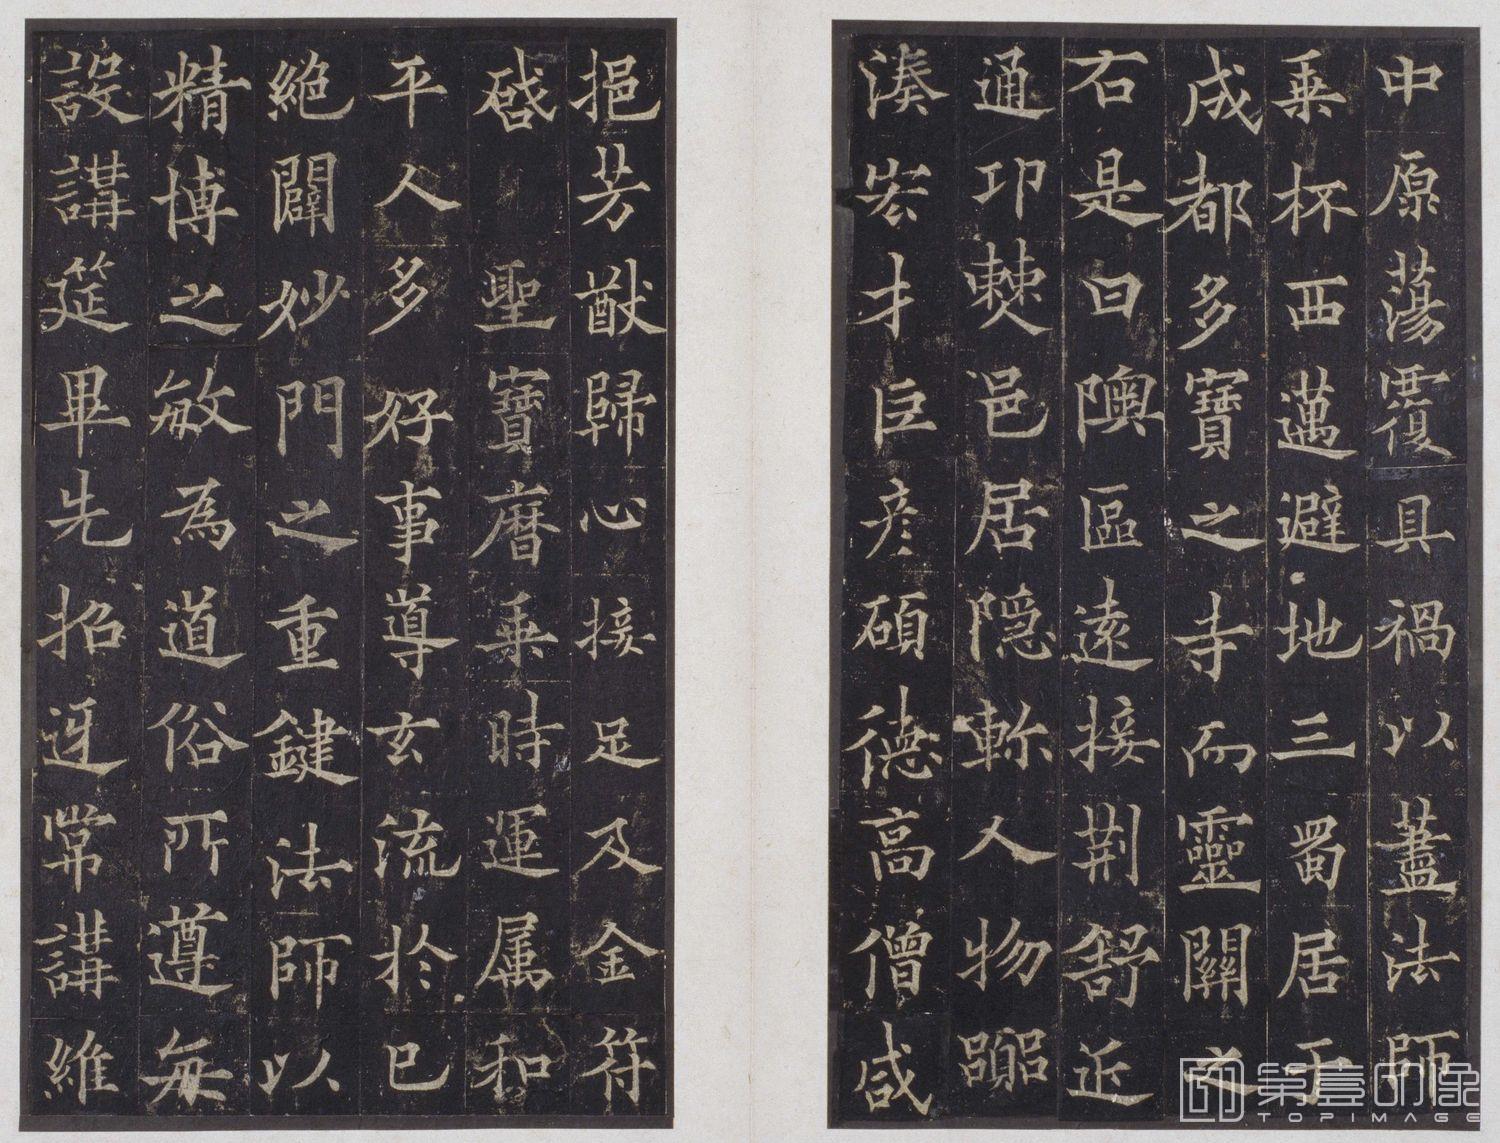 中原蕩覆具禍以蓋法師
乘杯西邁避地三蜀居于
成都多寶之寺而靈關之
右是曰隩區遠接荊舒近
通邛僰邑居隱軫人物
湊宏才巨彥碩德高僧咸
挹芳猷歸心接足及金符
啓聖寶曆乘時運属和
平人多好事導玄流於已
絶闢妙門之重鍵法師以
精博之敏為道俗所遵每
設講筵畢先招迓常講維
第壹印象
TOPIMAGE